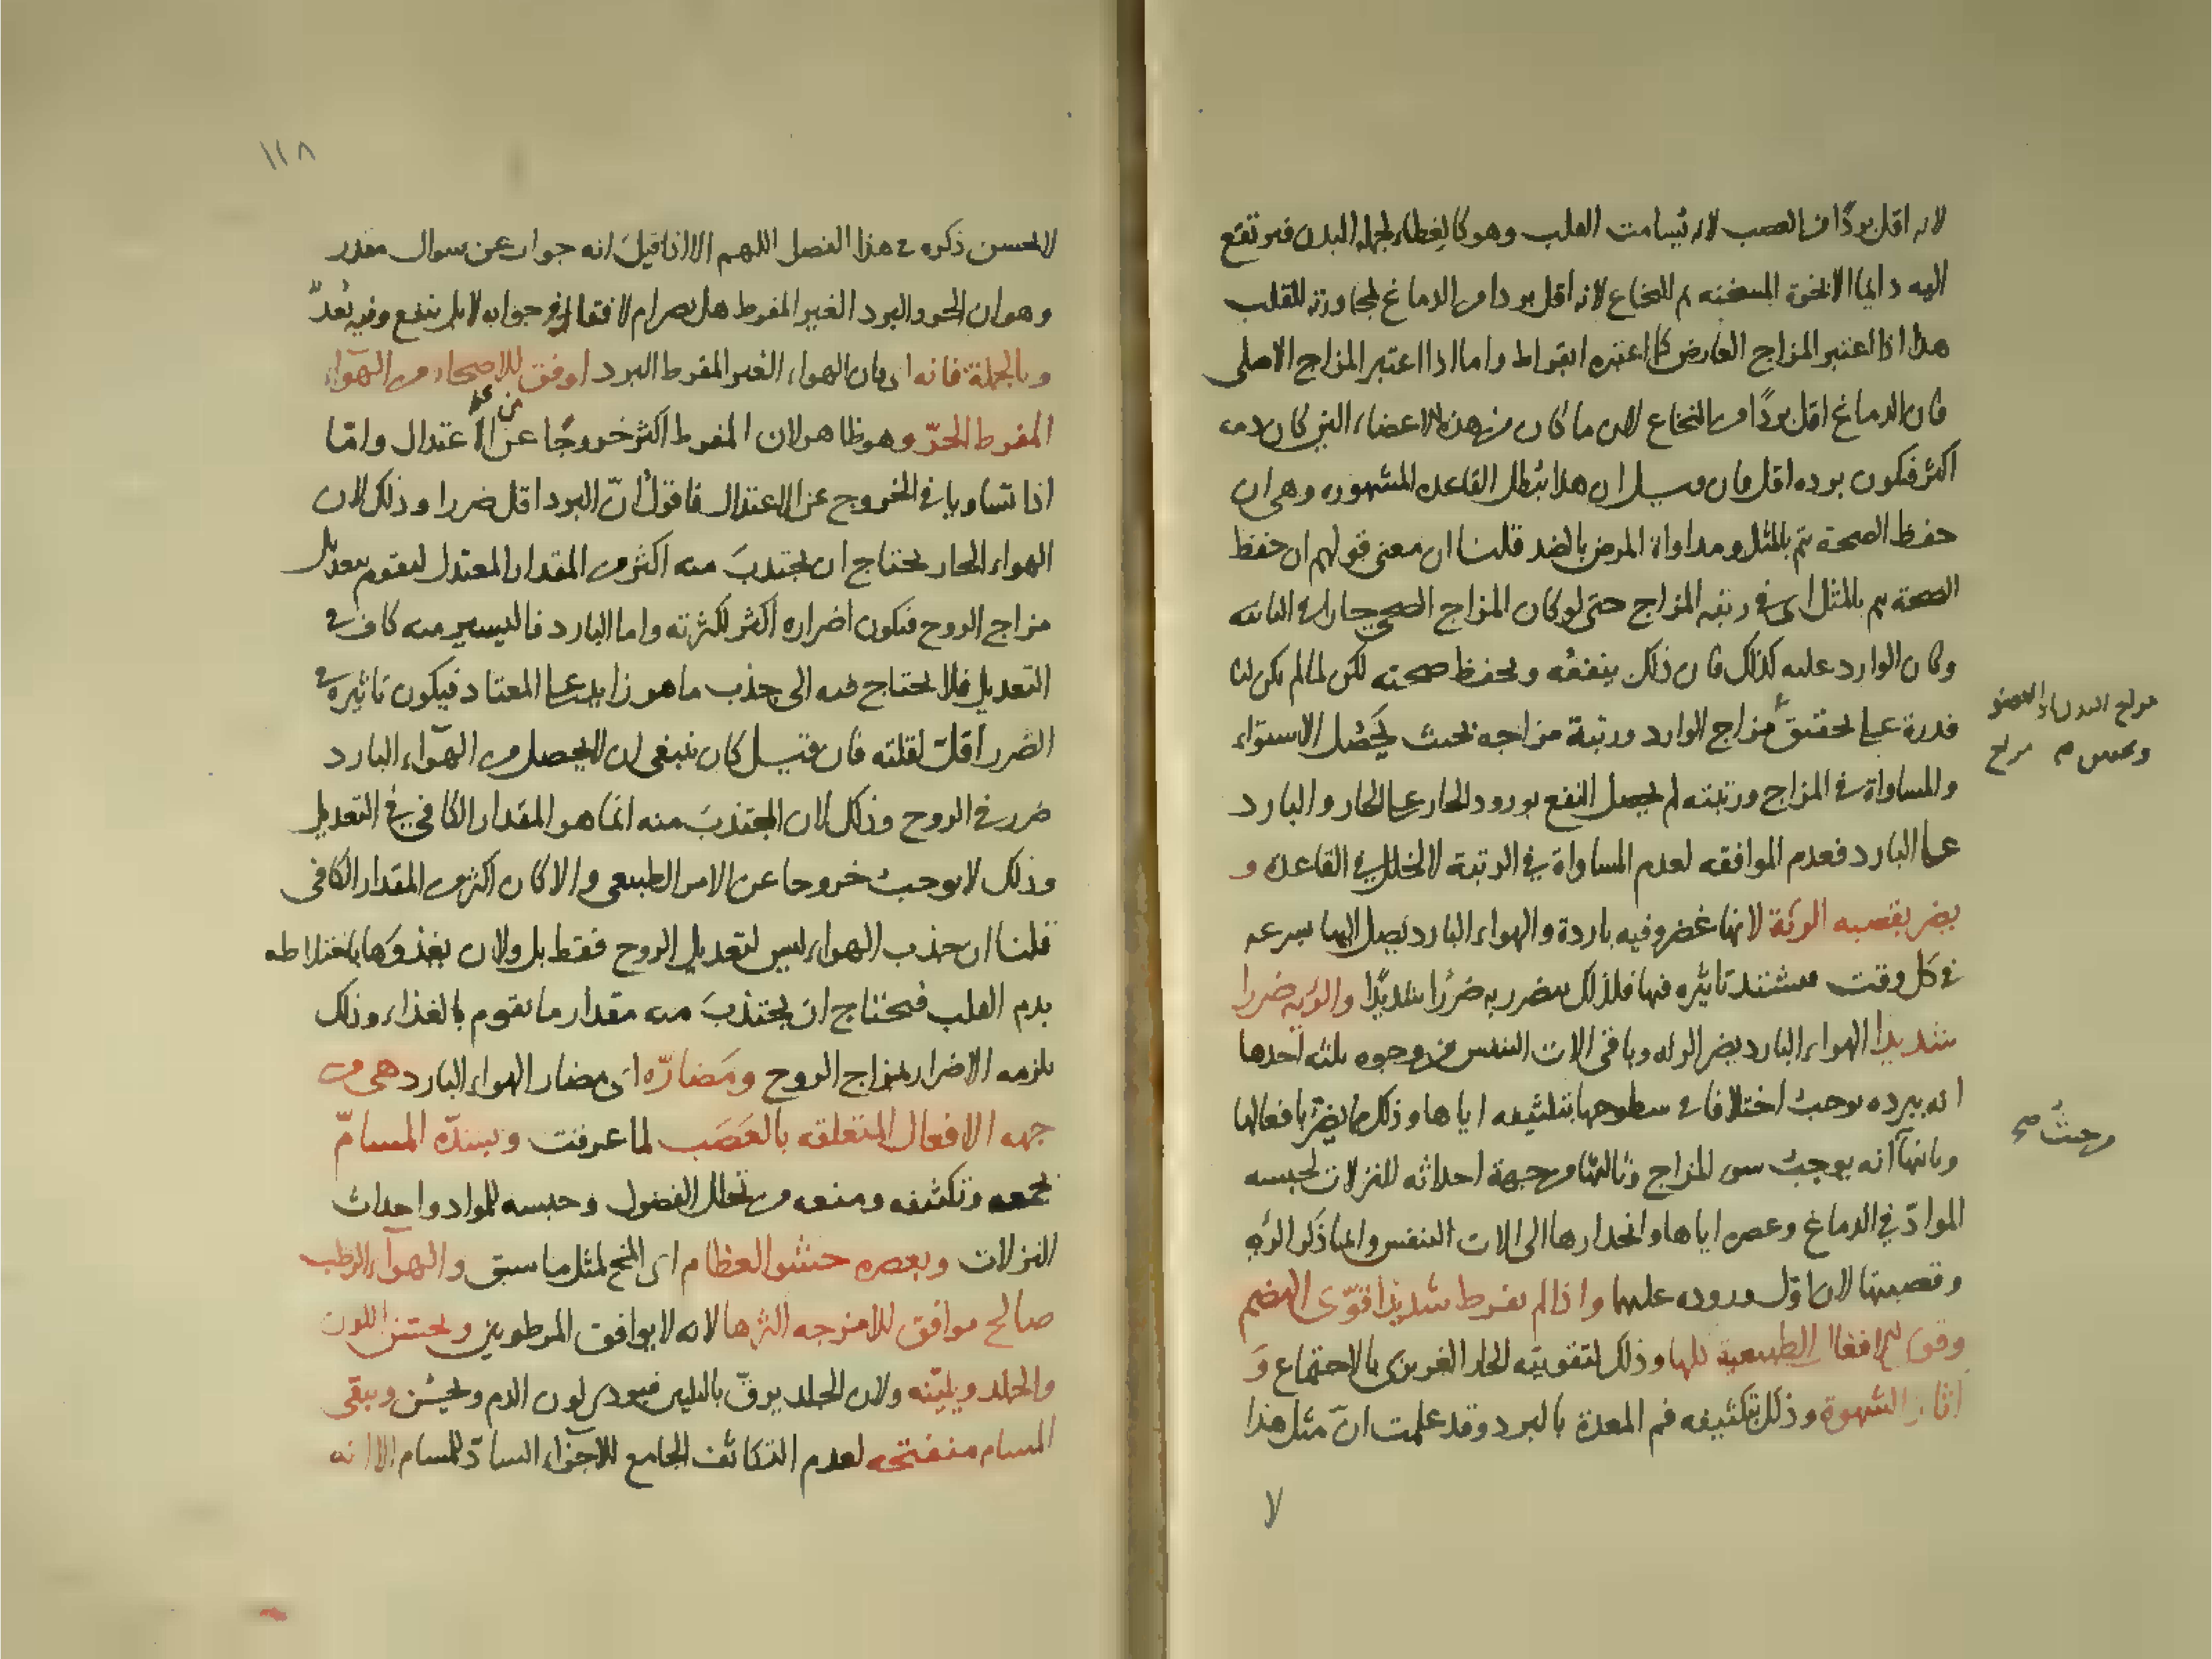 لانه اقل بردًا من العصب لانه يسامت القلب وهو كالغطاء لجملة البدن فيرتفع
اليه دائما الابخرة المسخنه ثم النخاع لانه اقل بردا من الدماغ لمجاورته للقلب
هذا اذا اعتبر المزاج العارض كما اعتبره ابقراط واما اذا اعتبر المزاج الاصلى
فان الدماغ اقل بردًا من النخاع لان ما كان من هذه الاعضاء التى كان دمه
اكثر فيكون برده اقل فان قيل ان هذا يبطل القاعده المشهوره وهى ان
حفظ الصحة يتم بالمثل ومداواة المرض بالضد قلنا ان معنى قولهم ان حفظ
الصحة يتم بالمثل اى فى رتبه المزاج حتى لو كان المزاج الصحى حارا فى الثانيه
وكان الوارد عليه كذلك فان ذلك ينفعه ويحفظ صحته لكن لما لم يكن لنا
قدرة على تحقيق مزاج الوارد ورتبة مزاجه بحيث يحصل الاستواء
والمساواة فى المزاج ورتبته لم يحصل النفع بورود الحار على الحار والبارد
على البارد فعدم الموافقه لعدم المساواة فى الرتبة لا لخلل فى القاعدة و
يضر بقصبه الرئة لانها غضروفيه باردة والهواء البارد يصل اليها بسرعه
فى كل وقت فيشتد تاثيره فيها فلذلك يتضرر به ضررا شديدًا والريه ضررا
شديدا الهواء البارد يضر الرئه وباقى الات التنفس من وجوه ثلثه احدها
انه ببرده يوجب اختلافا فى سطوحها بتكثيفه اياها وذلك مما يضر بافعالها
وثانيها انه يوجب سوء المزاج وثالثها من جهة احداثه للنزلات لحبسه
الموادّ فى الدماغ وعصره اياها وانحدارها الى الات التنفس وانما ذكر الريه
وقصبتها لان اوّل وروده عليها واذا لم يفرط شديدا قوّى الهضم
وقوى الافعال الطبيعية كلها وذلك لتقويته الحار الغريزى بالاجتماع وَ
اثار الشهوة وذلك بتكثيفه فم المعدة بالبرد وقد علمت انّ مثل هذا
مزاج البدن او العضو
مزاج
من حيث صح
لا
١١٨
لا يحسن ذكره فى هذا الفصل اللهم الا اذا قيل انه جواب عن سوال مقدر
وهو ان الحر والبرد الغير المفرط هل يضر ام لا فقال فى جوابه لا بل ينفع وفيه بُعدٌ
وبالجملة فانه اى فان الهواء الغير المفرط البرد اوفق للاصحاء من الهوآء
المفرط الحرّ وهو ظاهر لان المفرط اكثر خروجًا عن الاعتدال وامّا
اذا تساويا فى الخروج عن الاعتدال فاقول انّ البرد اقل ضررا وذلك لان
الهواء الحار يحتاج ان يجتذب منه اكثر من المقدار المعتدل ليقوم بتعديل
مزاج الروح فيكون اضراره اكثر لكثرته واما البارد فاليسير منه كاف فى
التعديل فلا يحتاج فيه الى جذب ما هو زايد على المعتاد فيكون تاثيره فى
الضرر اقلّ لقلته فان قيل كان ينبغى ان لا يحصل من الهوآء البارد
ضرر فى الروح وذلك لان المجتذب منه انما هو المقدار الكافى فى التعديل
وذلك لا يوجب خروجا عن الامر الطبيعى والا كان اكثر من المقدار الكافى
قلنا ان جذب الهواء ليس لتعديل الروح فقط بل ولان يغذوها باختلاطه
بدم القلب فيحتاج ان يجتذب منه مقدار ما يقوم بالغذاء وذلك
يلزمه الاضرار بمزاج الروح ومَضارّه اى مضار الهواء البارد هى من
جهه الافعال المتعلقه بالعَصَب لما عرفت وبسدّه المسامّ
بجمعه وتكثيفه ومنعه من تحلل الفضول وحبسه للمواد واحداث
النزلات وبعصره حشو العظام اى المخ لمثل ما سبق والهوآء الرطب
صالح موافق للامزجه اكثرها لانه لا يوافق المرطوبين ويحسّن اللون
والجلد ويليّنه ولان الجلد يرقّ بالليين فيودى لون الدم ويحسُن ويبقى
المسام منفتحه لعدم التكاثف الجامع للاجزاء السادّ للمسام الا انه